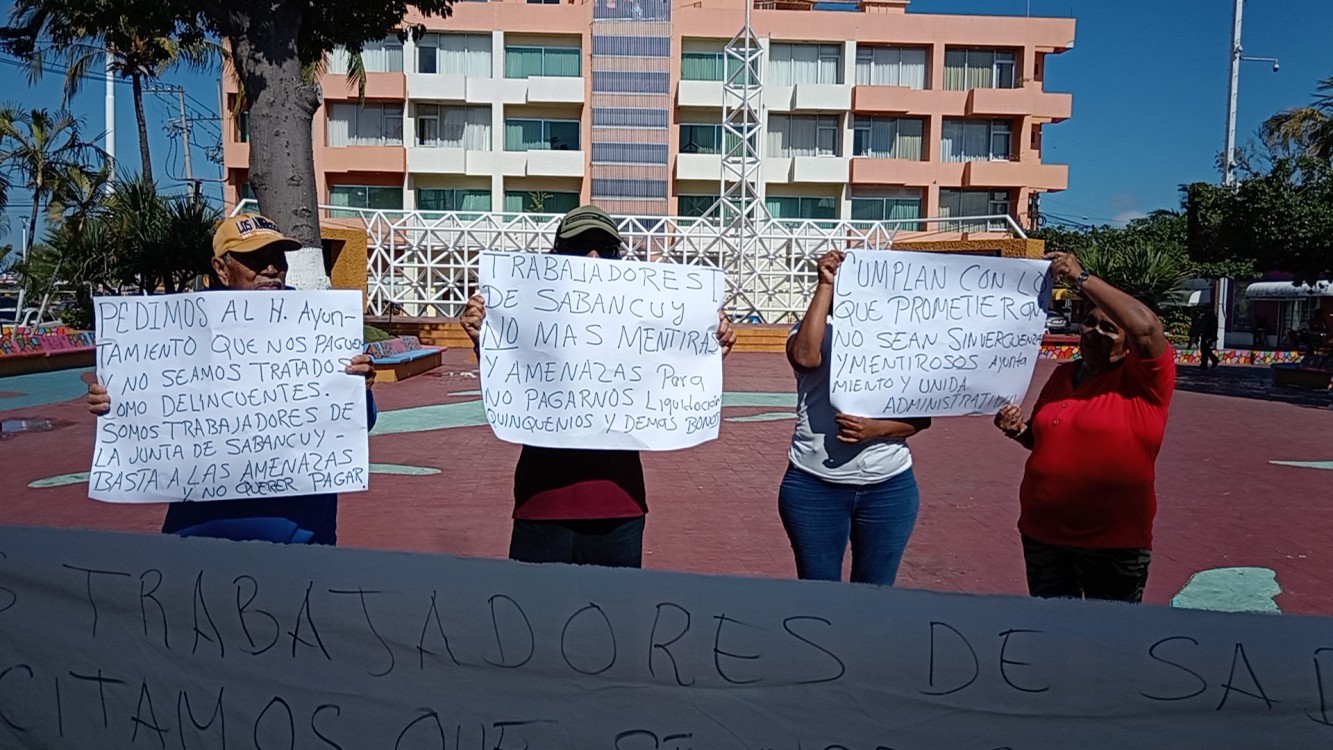 LOS ANGELES
PEDIMOS AL H. Ayun-
TAMIENTO QUE NOS PAGUEN
Y NO SEAMOS TRATADOS
COMO DELINCUENTES.
SOMOS TRABAJADORES DE
LA JUNTA DE SABANCUY-
BASTA A LAS AMENAZAS
Y NO QUERER PAGAR.
TRABAJADORES
DE SABANCUY
NO MAS MENTIRAS
Y AMENAZAS Para
NO PAGARNOS Liquidación
QUINQUENIOS Y DEMAS BONOS
CUMPLAN CON LO
QUE PROMETIERON
NO SEAN SINVERGUENZAS
Y MENTIROSOS Ayunta
MIENTO Y UNIDA
ADMINISTRATIVA
TRABAJADORES DE SAB
CITAMOS QUE SE